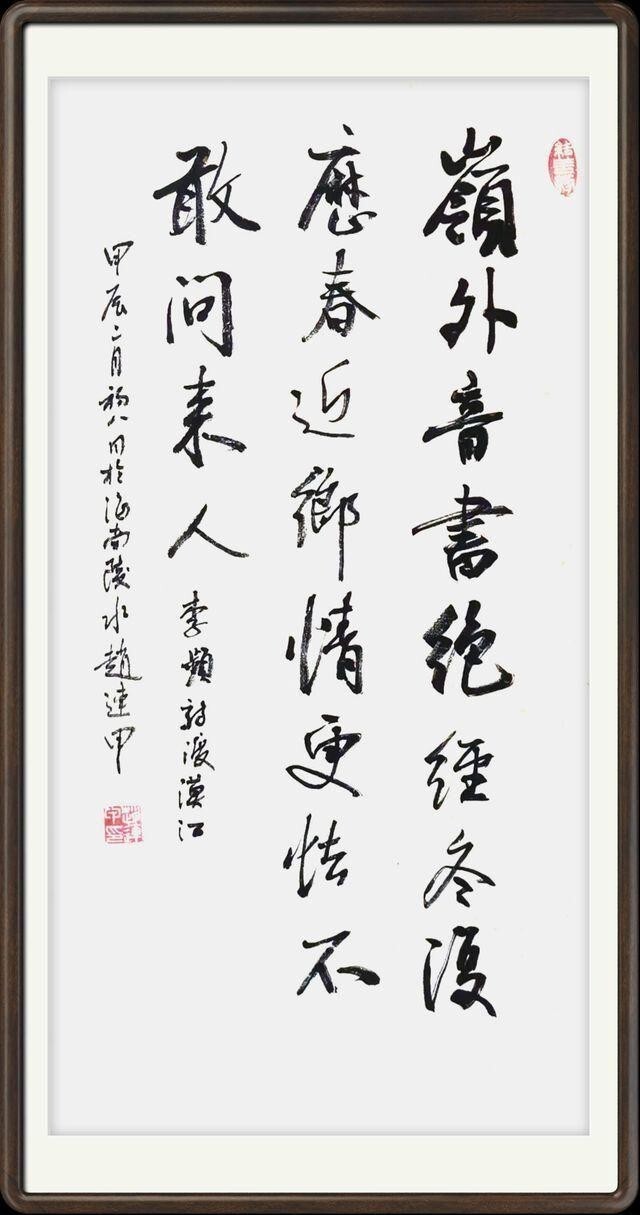 嶺外音書絶經冬復
歷春近鄉情更怯不
敢問来人
李頻詩渡漢江
甲辰二月初八日於海南陵水趙連甲